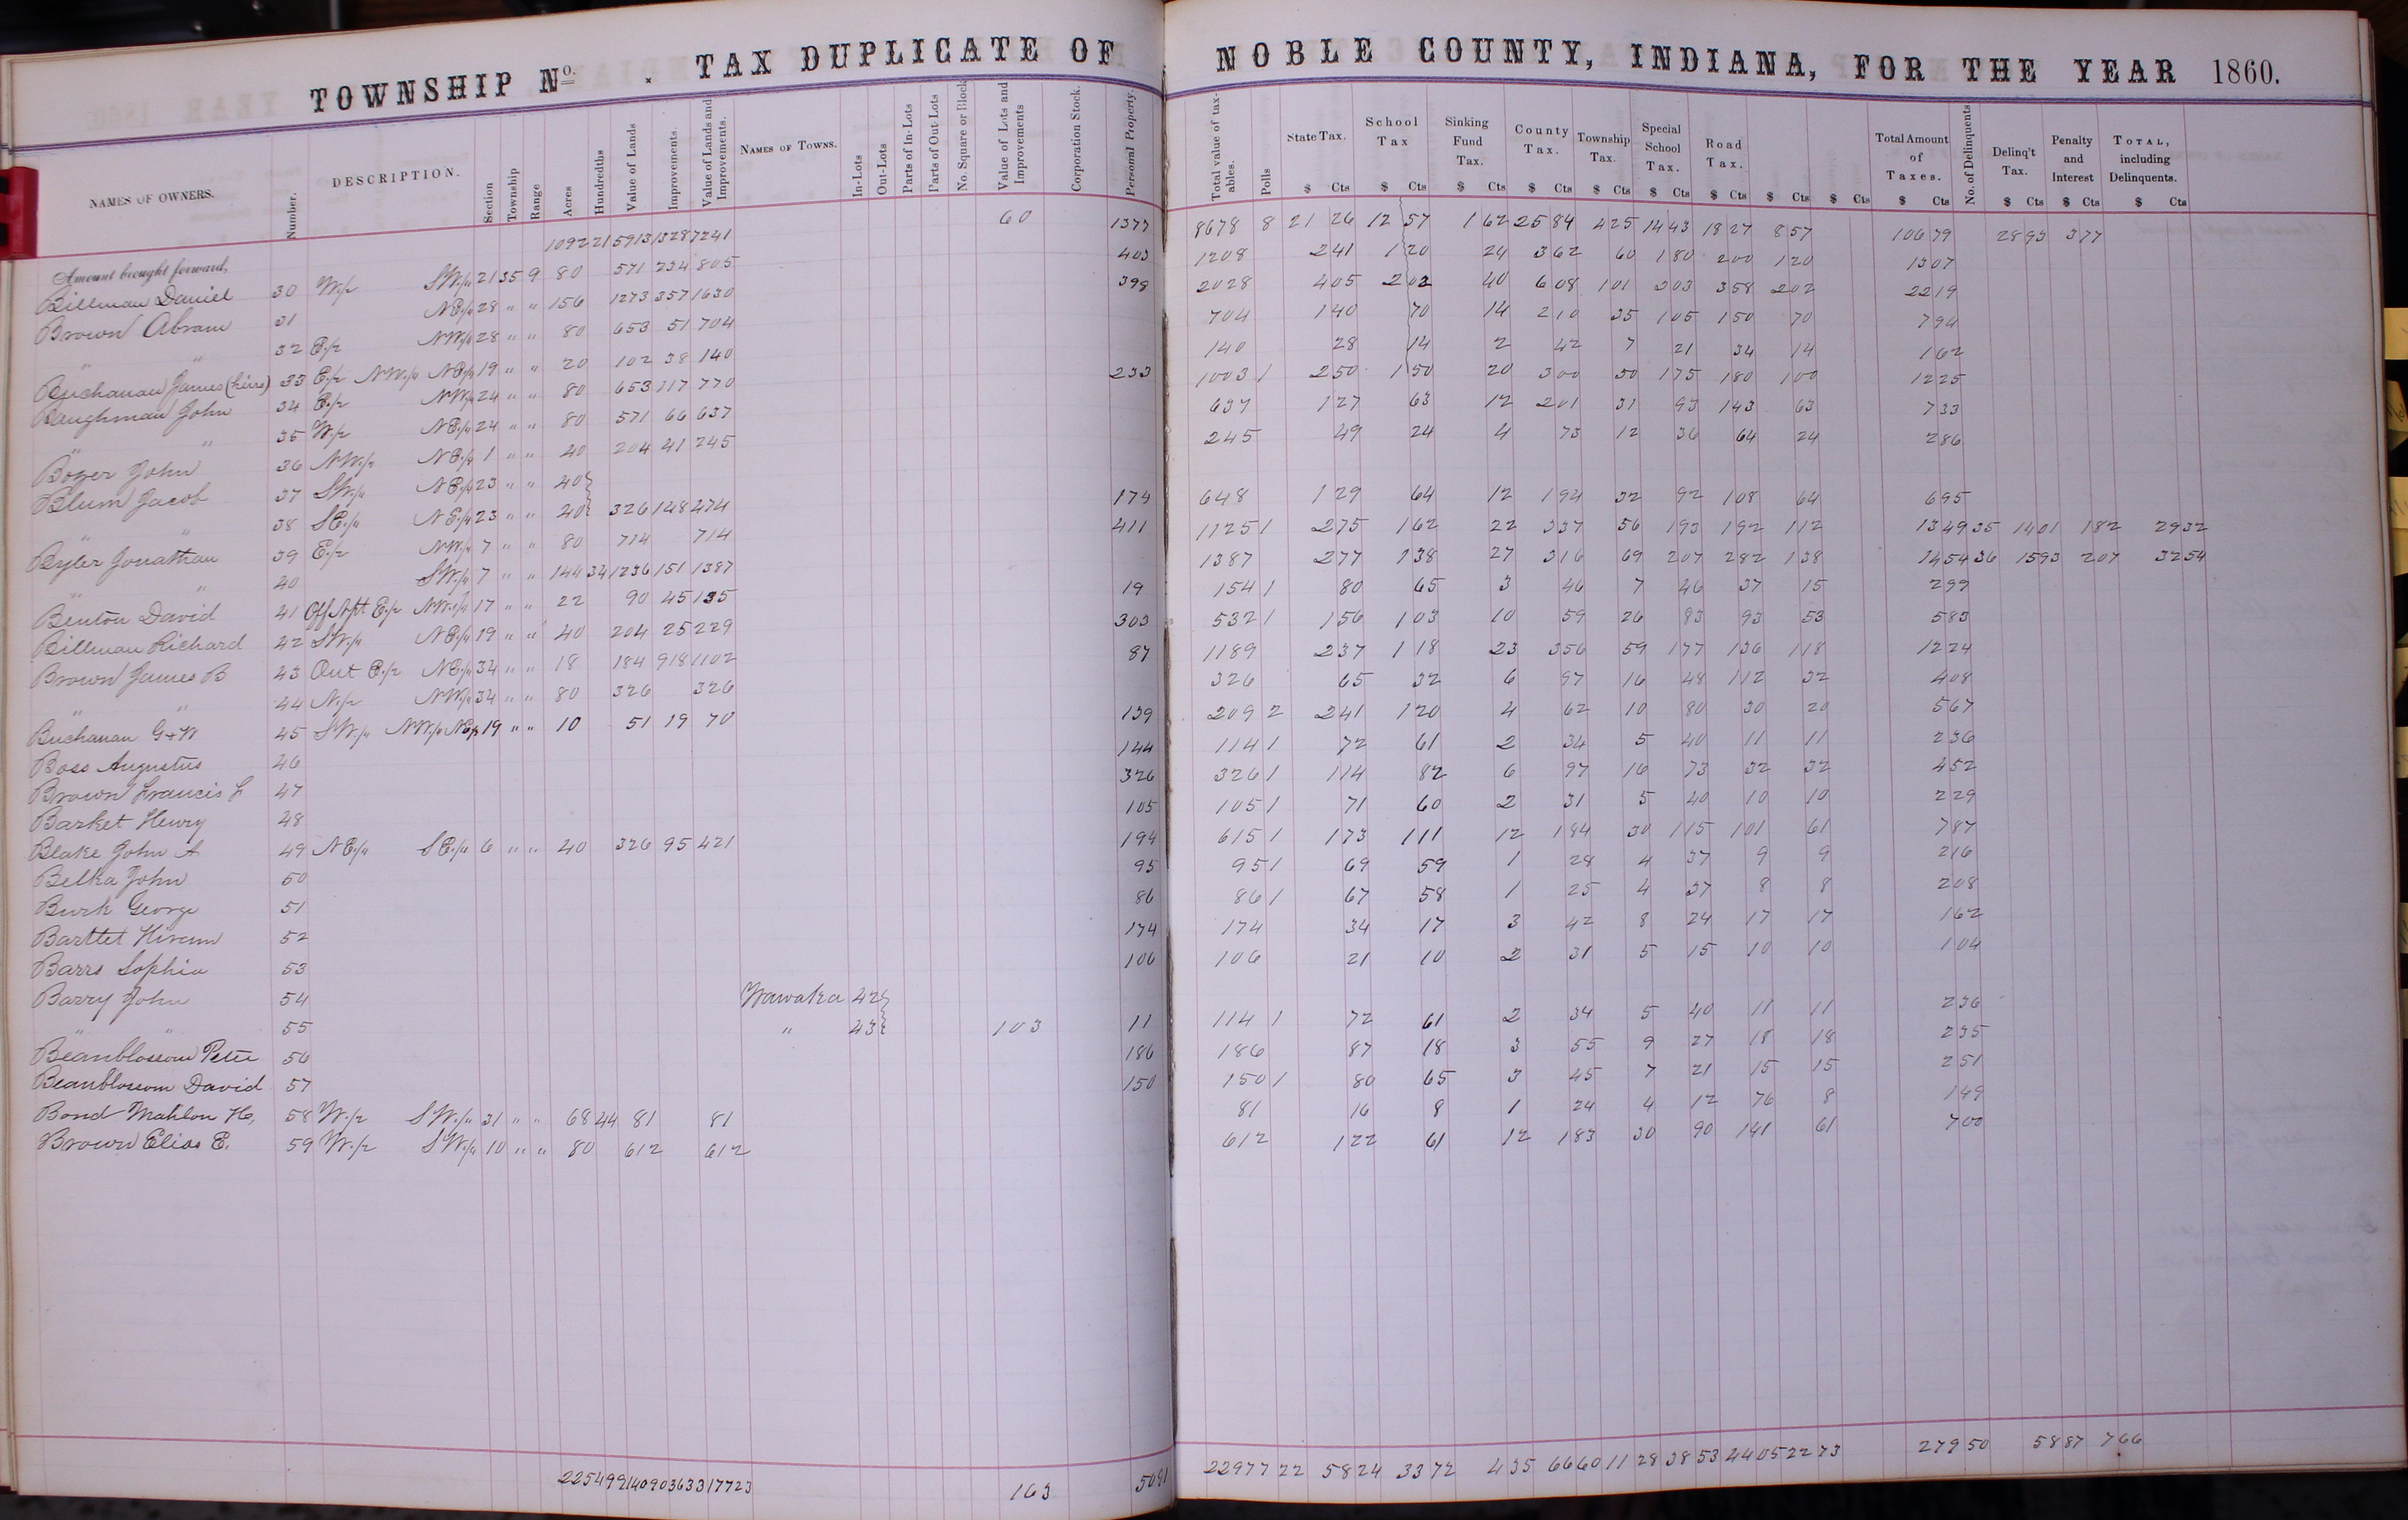 TOWNSHIP No. . TAX DUPLICATE OF NOBLE COUNTY, INDIANA, FOR THE YEAR 1860.
NAMES OF OWNERS. Number. DESCRIPTION. Section Township Range Acres Hundredths Value of Lands Improvements. Value of Lands and Improvements. NAMES OF TOWNS. In-Lots Out-Lots Parts of In-Lots Parts of Out-Lots No. Square or Block Value of Lots and Improvements Corporation Stock. Personal Property. Total value of taxables. Polls State Tax. School Tax Sinking Fund Tax. County Tax. Township Tax. Special School Tax. Road Tax. Total Amount of Taxes. No. of Delinquents Delinq't Tax. Penalty and Interest TOTAL, including Delinquents.
$ Cts $ Cts $ Cts $ Cts $ Cts $ Cts $ Cts $ Cts $ Cts $ Cts $ Cts $ Cts $ Cts
Amount brought forward, 1092 21 5913 1328 7241 60 1377 8678 8 21 26 12 57 1 62 25 84 4 25 14 43 18 27 8 57 106 79 28 93 3 77
Billman Daniel 30 W.1/2 SW.1/4 21 35 9 80 571 234 805 403 1208 2 41 1 20 24 3 62 60 1 80 2 00 1 20 13 07
Brown Abram 31 NE.1/4 28 " " 156 1273 357 1630 398 2028 4 05 2 02 40 6 08 1 01 3 03 3 58 2 02 22 19
" " 32 E.1/2 NW.1/4 28 " " 80 653 51 704 704 1 40 70 14 2 10 35 1 05 1 50 70 7 94
Buchanan James (heirs) 33 E.1/2 NW.1/4 NE.1/4 19 " " 20 102 38 140 140 28 14 2 42 7 21 34 14 1 62
Baughman John 34 E.1/2 NW.1/4 24 " " 80 653 117 770 233 1003 1 2 50 1 50 20 3 00 50 1 75 1 80 1 00 12 25
" " 35 W.1/2 NE.1/4 24 " " 80 571 66 637 637 1 27 63 12 2 01 31 93 1 43 63 7 33
Boyer John 36 NW.1/4 NE.1/4 1 " " 40 204 41 245 245 49 24 4 73 12 36 64 24 2 86
Blum Jacob 37 SW.1/4 NE.1/4 23 " " 40
" " 38 SE.1/4 NE.1/4 23 " " 40 326 148 474 174 648 1 29 64 12 1 94 32 92 1 08 64 6 95
Byler Jonathan 39 E.1/2 NW.1/4 7 " " 80 714 714 411 1125 1 2 75 1 62 22 3 37 56 1 93 1 92 1 12 13 49 35 14 01 1 82 29 32
" " 40 SW.1/4 7 " " 144 34 1236 151 1387 1387 2 77 1 38 27 3 16 69 2 07 2 82 1 38 14 54 36 15 93 2 07 32 54
Benton David 41 Off Npt E.1/2 NW.1/4 17 " " 22 90 45 135 19 154 1 80 65 3 46 7 46 37 15 2 99
Billman Richard 42 SW.1/4 NE.1/4 19 " " 40 204 25 229 303 532 1 1 56 1 03 10 59 26 83 93 53 5 83
Brown James B 43 Out E.1/2 NE.1/4 34 " " 18 184 918 1102 87 1189 2 37 1 18 23 3 56 59 1 77 1 36 1 18 12 24
" " 44 N.1/2 NW.1/4 34 " " 80 326 326 326 65 32 6 97 16 48 1 12 32 4 08
Buchanan G+W 45 SW.1/4 NW.1/4 NE.1/4 19 " " 10 51 19 70 139 209 2 2 41 1 20 4 62 10 80 30 20 5 67
Boss Augustus 46 144 114 1 72 61 2 34 5 40 11 11 2 36
Brown Francis L 47 326 326 1 1 14 82 6 97 16 73 32 32 4 52
Barket Henry 48 105 105 1 71 60 2 31 5 40 10 10 2 29
Blake John A 49 NE.1/4 SE.1/4 6 " " 40 326 95 421 194 615 1 1 73 1 11 12 1 84 30 1 15 1 01 61 7 87
Belka John 50 95 95 1 69 59 1 28 4 37 9 9 2 16
Burk George 51 86 86 1 67 58 1 25 4 37 8 8 2 08
Barttet Hiram 52 174 174 34 17 3 42 8 24 17 17 1 62
Barrs Sophia 53 106 106 21 10 2 31 5 15 10 10 1 04
Barry John 54 Wawaka 42
" " 55 " 43 103 11 114 1 72 61 2 34 5 40 11 11 2 36
Beanblossom Peter 56 186 186 87 18 3 55 9 27 18 18 2 35
Beanblossom David 57 150 150 1 80 65 3 45 7 21 15 15 2 51
Bond Mahlon H, 58 W.1/2 SW.1/4 31 " " 68 44 81 81 81 16 8 1 24 4 12 76 8 1 49
Brown Elias E. 59 W.1/2 SW.1/4 10 " " 80 612 612 612 1 22 61 12 1 83 30 90 1 41 61 7 00
2254 99 14090 3633 17723 163 5091 22977 22 58 24 33 72 4 35 66 60 11 28 38 53 44 05 22 73 279 50 58 87 7 66